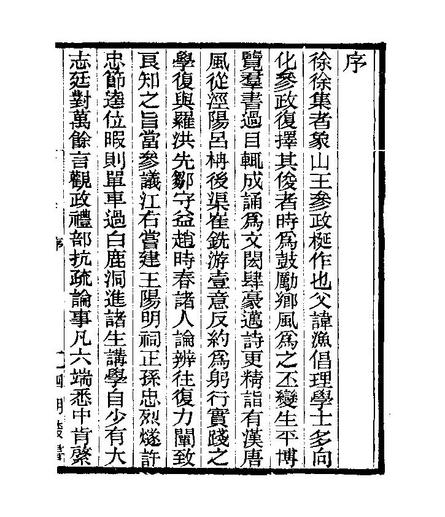 序
徐徐集者象山王參政梴作也父諱渙倡理學士多向
化參政復擇其俊者時爲鼓勵鄉風爲之丕變生平博
覽羣書過目輒成誦爲文閎肆豪邁詩更精詣有漢唐
風從涇陽呂柟後渠崔銑游壹意反約爲躬行實踐之
學復與羅洪先鄒守益趙時春諸人論辨往復力闡致
良知之旨當參議江右嘗建王陽明祠正孫忠烈燧許
忠節逵位暇則單車過白鹿洞進諸生講學自少有大
志廷對萬餘言觀政禮部抗疏論事凡六端悉中肯綮
序